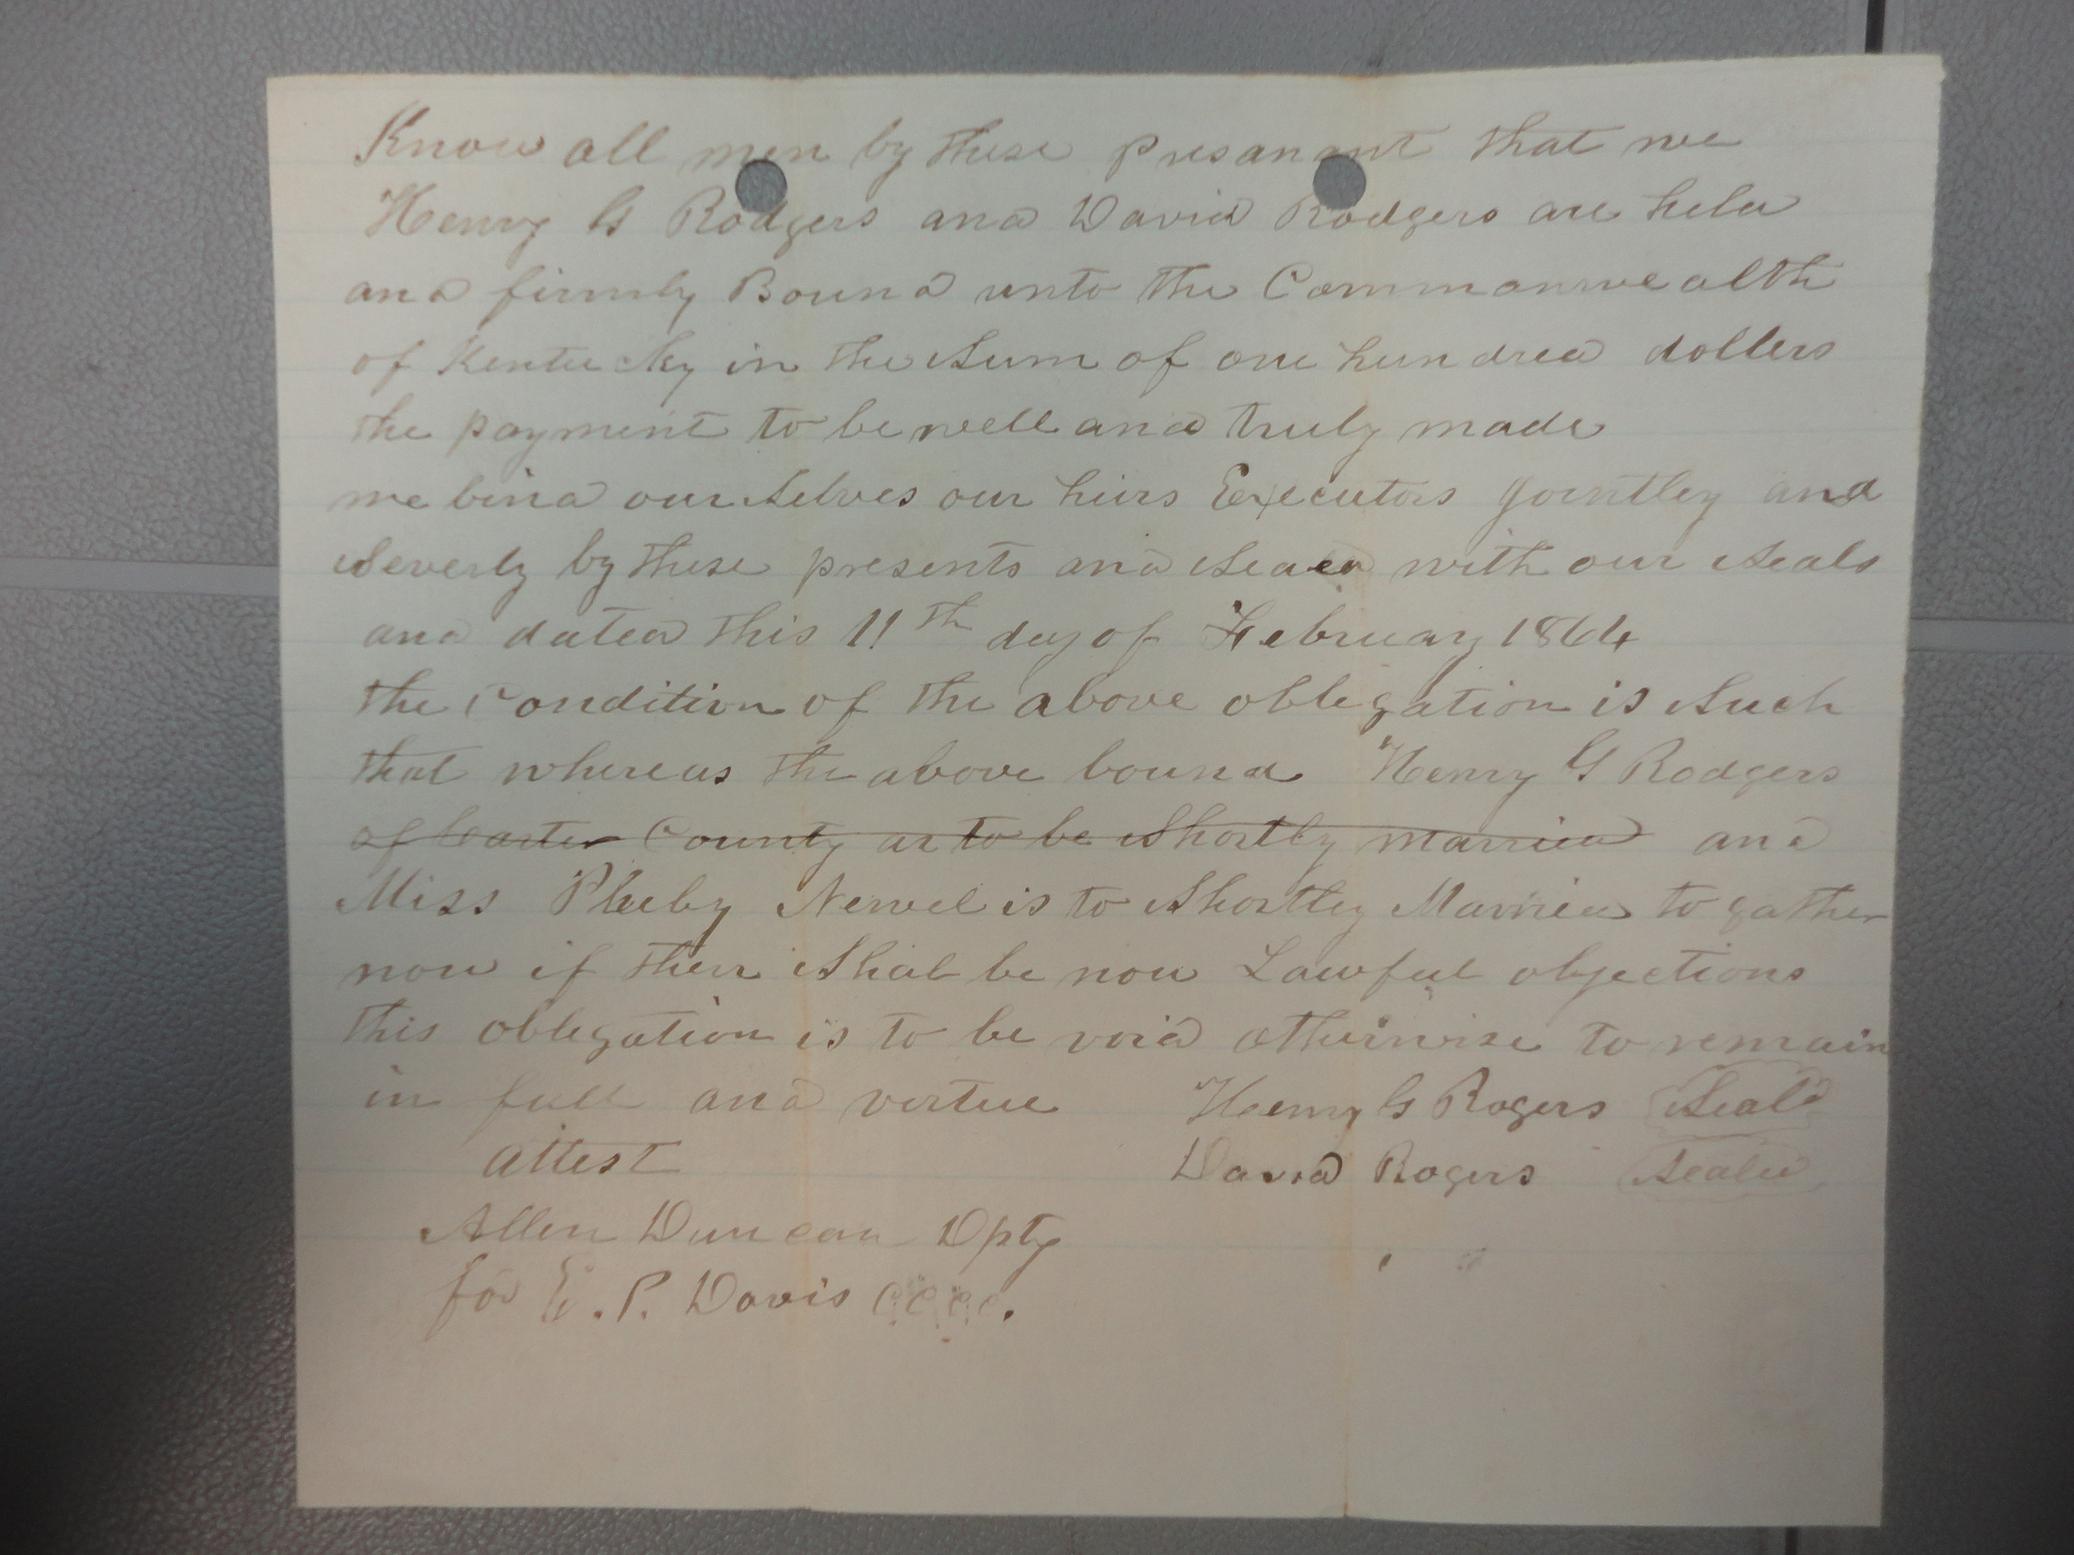 Know all men by these presanant that we
Henry G Rodgers and David Rodgers are held
and firmly Bound unto the Commonwealth
of Kentucky in the Sum of one hundred dollers
the payment to be well and truly made
we bind our Selves our heirs Executors Jointley and
Severly by these presents and Sealed with our Seals
and dated this 11th day of February 1864
the Condition of the above oblegation is Such
that whereas the above bound Henry G Rodgers
of Carter County ar to be Shortly married and
Miss Pheby Newel is to Shortley Married to gather
now if ther Shal be now Lawful objections
this oblegation is to be void otherwise to remain
in full and virtue Henry G Rogers Seald
attest David Rogers Seald
Allen Duncan Dpty
for E. P. Davis CCCC.